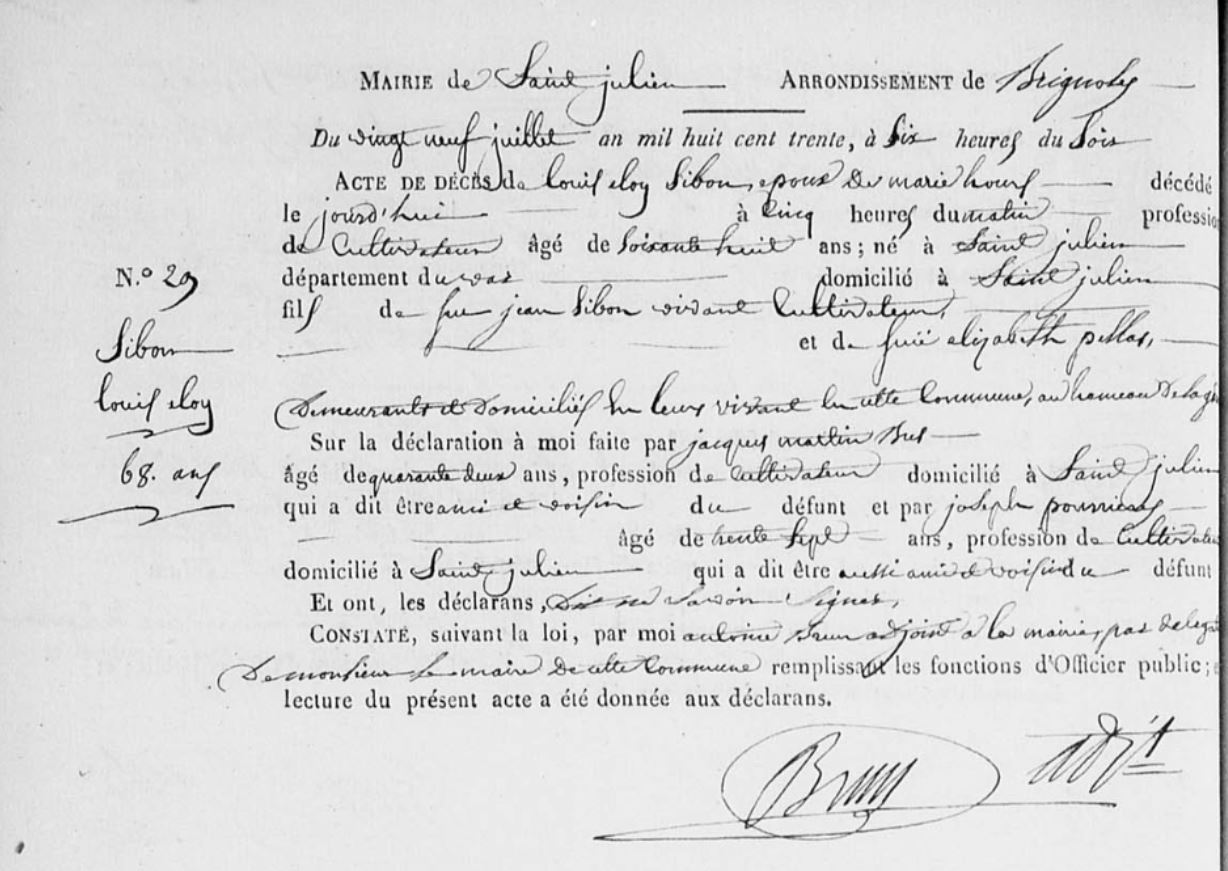 MAIRIE de Saint julien ARRONDISSEMENT de Brignoles
Du vingt neuf juillet an mil huit cent trente, à Six heures du Soir
ACTE DE DÉCÈS de louis eloy Sibon, epoux de marie hours décédé
le jourd'hui à Cinq heures du matin profession
de Cultivateur âgé de Soixante huit ans; né à Saint julien
département du var domicilié à Saint julien
fils de feu jean Sibon vivant Cultivateur,
et de feüe elizabeth pellas,
N.º 29
Sibon
louis eloy
68. ans
Demeurants et Domiciliés En leurs vivant En cette Commune, au hameau De la
Sur la déclaration à moi faite par jacques martin
âgé de quarante deux ans, profession de Cultivateur domicilié à Saint julien
qui a dit être ami et voisin du défunt et par joseph pourrieres
âgé de trente Sept ans, profession de Cultivateur
domicilié à Saint julien qui a dit être aussi ami et voisin du défunt
Et ont, les déclarans, Dit ne Savoir Signer,
CONSTATÉ, suivant la loi, par moi antoine Brun adjoint a la mairie, par
De monsieur Le maire De cette Commune remplissant les fonctions d'Officier public;
lecture du présent acte a été donnée aux déclarans.
Brun adj.t